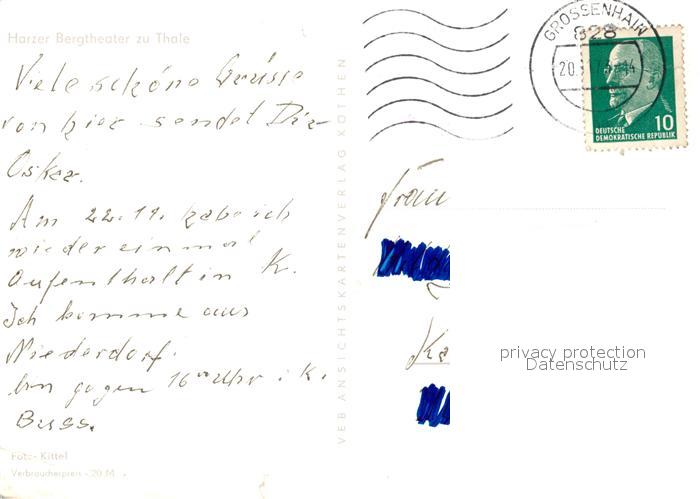 Harzer Bergtheater zu Thale
Viele schöne Grüsse
von hier sendet Dir
Oskar.
Am 22.11. habe ich
wieder einmal
Aufenthalt in K.
Ich komme aus
Niederdorf.
bin gegen 16 00 Uhr i. K.
Buss.
Foto- Kittel
Verbraucherpreis -,20 M
VEB ANSICHTSKARTENVERLAG KÖTHEN
GROSSENHAIN
828
DEUTSCHE
DEMOKRATISCHE REPUBLIK
10
Frau
Ka
privacy protection
Datenschutz